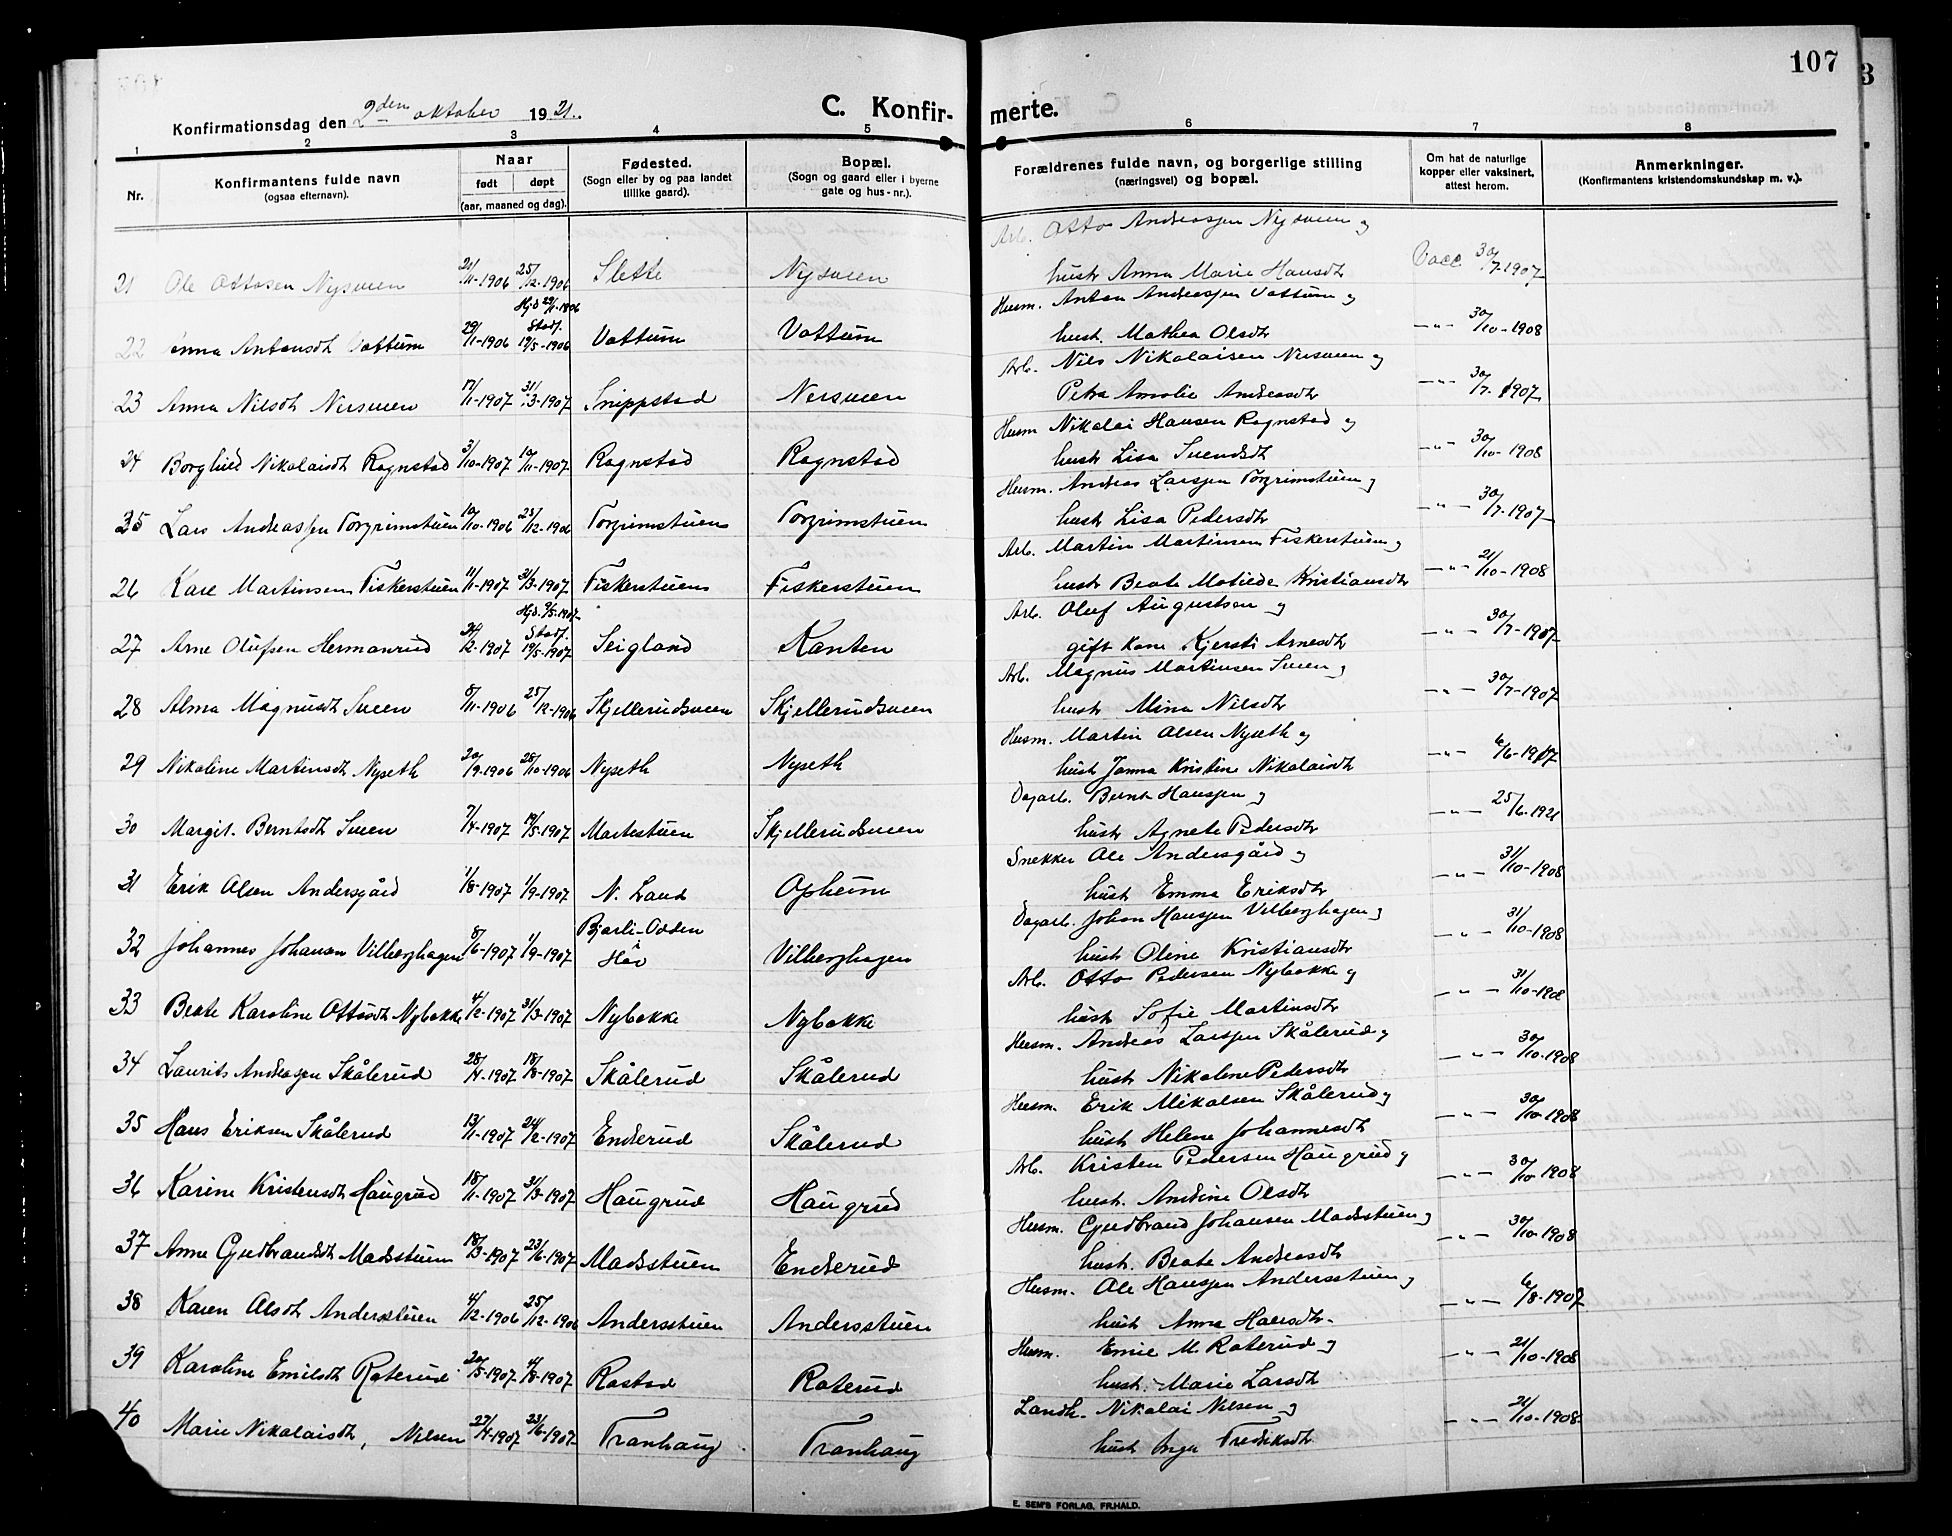 107
Konfirmationsdag den 2den oktober 1921.
C. Konfirmerte.
1 2 3 4 5 6 7 8
Nr.
Konfirmantens fulde navn
(ogsaa efternavn).
Naar
født døpt
(aar, maaned og dag).
Fødested.
(Sogn eller by og paa landet
tillike gaard).
Bopæl.
(Sogn og gaard eller i byerne
gate og hus-nr.).
Forældrenes fulde navn, og borgerlige stilling
(næringsvei) og bopæl.
Om hat de naturlige
kopper eller vaksinert,
attest herom.
Anmerkninger.
(Konfirmantens kristendomskundskap m. v.).
Arb. Otto Andreassen Nysveen og
21 Ole Ottosen Nysveen 21/11-1906 25/12-1906 Slette Nysveen hustr Anna Marie Hansdtr Vacc 30/7-1907
Hjd 29/1-1906 Husm. Anton Andreassen Vattum og
22 Anna Antonsdtr Vattum 29/1-1906 Stadf. 19/5-1906 Vattum Vattum hust. Mathea Olsdtr —"— 30/10-1908
Arb. Nils Nikolaisen Nersveen og
23 Anna Nilsdtr Nersveen 17/1-1907 31/3-1907 Snippstad Nersveen Petra Amalie Andreasdtr —"— 30/7-1907
Husm Nikolai Hansen Rognstad og
24 Borghild Nikolaisdtr Rognstad 3/10-1907 10/11-1907 Rognstad Rognstad hustr Lisa Svendsdtr —"— 30/10-1908
Husm. Andreas Larssen Torgrimstuen og
25 Lars Andreassen Torgrimstuen 10/10-1906 23/12-1906 Torgrimstuen Torgrimstuen hustr Lisa Pedersdtr —"— 30/7-1907
Arb. Martin Martinsen Fiskerstuen og
26 Kare Martinsen Fiskerstuen 11/1-1907 31/3-1907 Fiskerstuen Fiskerstuen hustr Beate Matilde Kristiansdtr —"— 21/10-1908
Hjd. 9/5-1907 Arb. Oluf Augustsen og
27 Arne Olufsen Hermanrud 24/2-1907 Stadf. 19/5-1907 Seigland Kanten gift kone Kjersti Arnesdtr —"— 30/7-1907
Arb. Magnus Martinsen Sveen og
28 Alma Magnusdtr Sveen 8/11-1906 25/12-1906 Skjellerudsveen Skjellerudsveen hustr Mina Nilsdtr —"— 30/7-1907
Husm. Martin Olsen Nyseth og
29 Nikoline Martinsdtr Nyseth 20/9-1906 28/10-1906 Nyseth Nyseth hustr Janna Kristine Nikolaisdtr —"— 6/6-1917
Dagarb. Bernt Hanssen og
30 Margit Berntsdtr Sveen 7/4-1907 19/5-1907 Martestuen Skjellerudsveen hustr Agnete Pedersdtr —"— 25/6-1921
Snekker Ole Andersgård og
31 Erik Olsen Andersgård 1/8-1907 1/9-1907 N. Land Opheim hustr Emma Eriksdtr —"— 31/10-1908
Bjarli-Odden Dagarb. Johan Hanssen Vilberghagen og
32 Johannes Johansen Vilberghagen 8/6-1907 1/9-1907 Hår Vilberghagen hustr Oline Kristiansdtr —"— 31/10-1908
Arb. Otto Pedersen Nybakke og
33 Beate Karoline Ottosdtr Nybakke 4/2-1907 31/3-1907 Nybakke Nybakke hustr Sofie Martinsdtr —"— 31/10-1908
Husm. Andreas Larssen Skålerud og
34 Laurits Andreassen Skålerud 28/4-1907 18/8-1907 Skålerud Skålerud hustr Nikoline Pedersdtr —"— 30/10-1908
Husm. Erik Mikalsen Skålerud og
35 Hans Eriksen Skålerud 13/1-1907 24/2-1907 Enderud Skålerud hustr Helene Johannesdtr —"— 30/10-1908
Arb. Kristen Pedersen Haugrud og
36 Karine Kristensdtr Haugrud 18/1-1907 31/3-1907 Haugrud Haugrud hustr. Andrine Olsdtr —"— 30/10-1908
Husm. Gudbrand Johansen Madsstuen og
37 Anne Gudbrandsdtr Madsstuen 18/3-1907 23/6-1907 Madsstuen Enderud hustr. Beate Andreasdtr —"— 30/10-1908
Husm. Ole Hanssen Andersstuen og
38 Karen Olsdtr Andersstuen 4/12-1906 25/12-1906 Andersstuen Andersstuen hustr Anna Hansdtr. —"— 6/8-1907
Husm. Emil M. Roterud og
39 Karoline Emilsdtr Roterud 20/5-1907 4/8-1907 Rostad Roterud hustr. Marie Larsdtr —"— 21/10-1908
Landh. Nikolai Nilsen og
40 Marie Nikolaisdtr, Nilsen 27/4-1907 23/6-1907 Tranhaug Tranhaug hustr Inga Fredriksdtr —"— 21/10-1908
E. SEM'S FORLAG, FR.HALD.